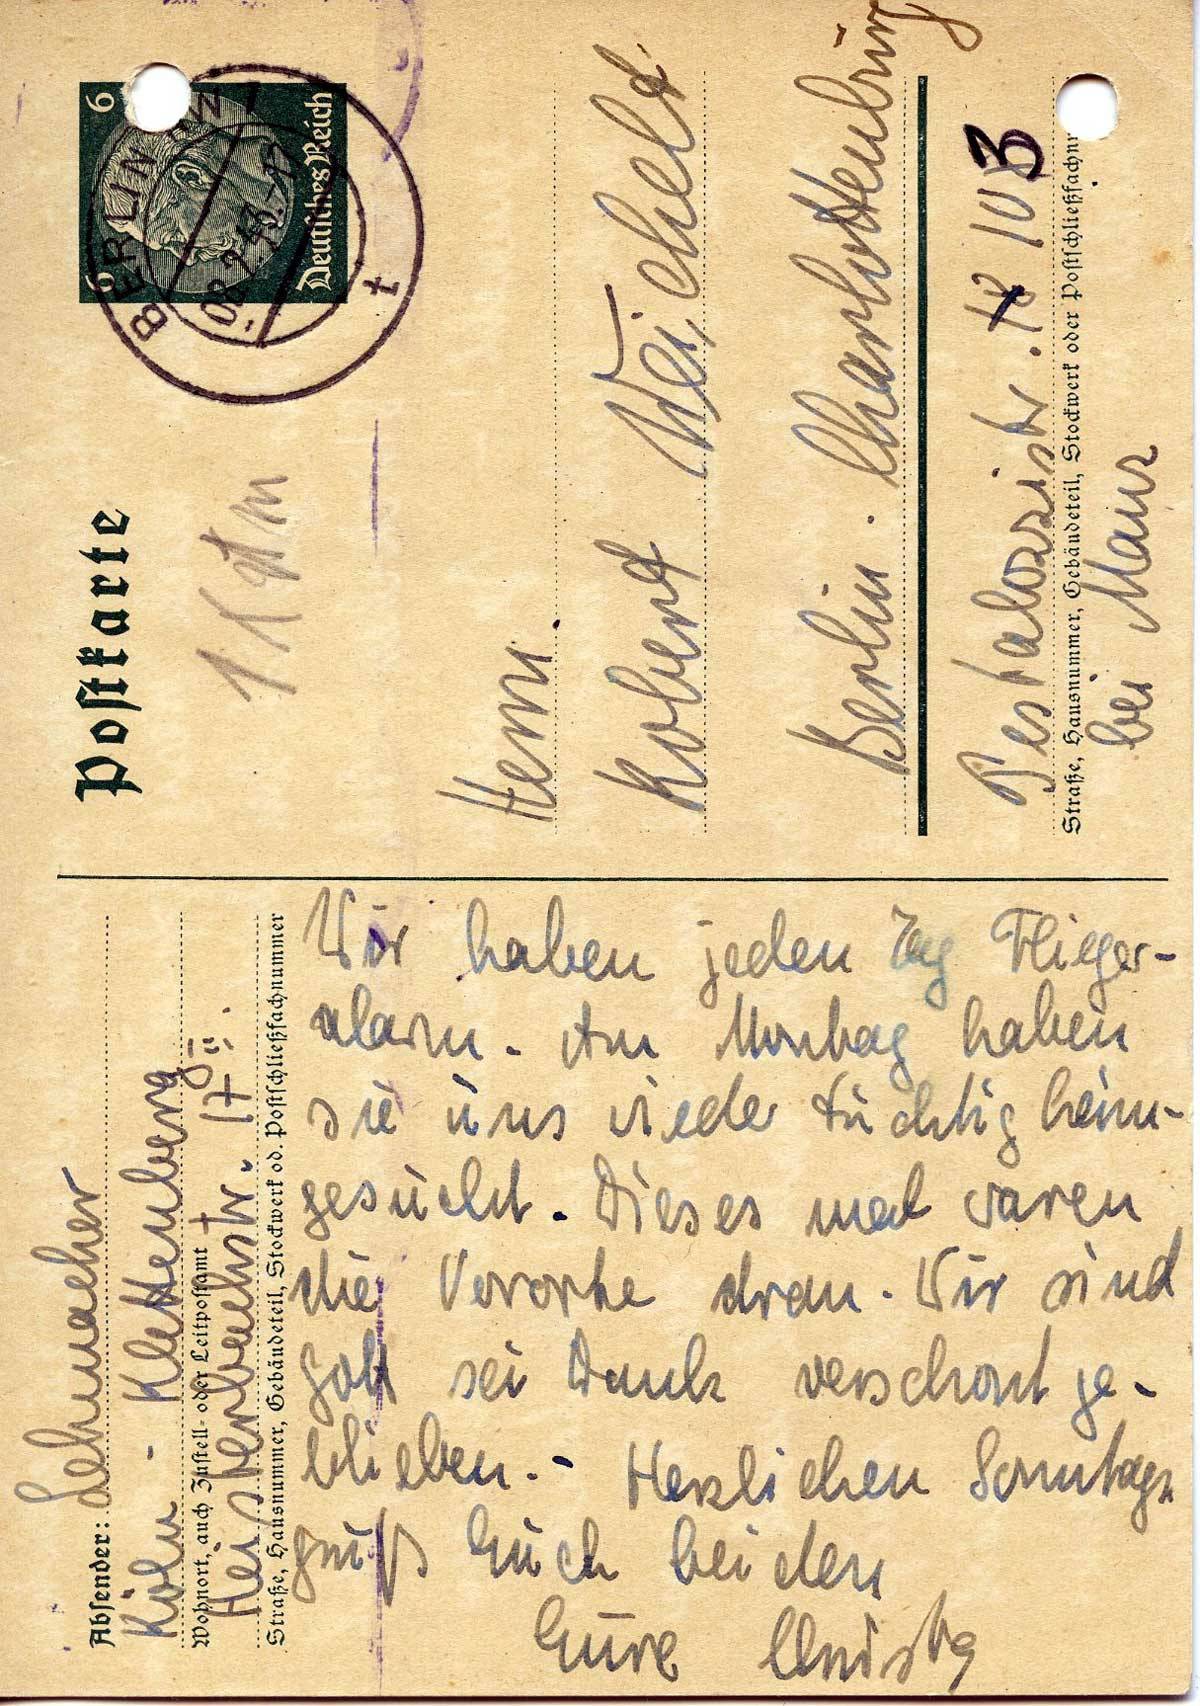 Postkarte
6 6
Deutsches Reich
BERLIN N
08.2.43.-17
t
Herrn
Robert Weichelt
Berlin. Charlottenburg
Pestalozzistr. 103
Straße, Hausnummer, Gebäudeteil, Stockwerk oder Postschließfachnr
bei Maur
Absender: Lehmacher
Köln - Klettenberg
Wohnort, auch Zustell- oder Leitpostamt
Heisterbachstr. 17
Straße, Hausnummer, Gebäudeteil, Stockwerk od. Postschließfachnummer
Wir haben jeden Tag Flieger-
alarm. Am Montag haben
sie uns wieder tüchtig heim-
gesucht. Dieses mal waren
die Vororte dran. Wir sind
Gott sei Dank verschont ge-
blieben. - Herzlichen Sonntags
gruß Euch beiden
Eure